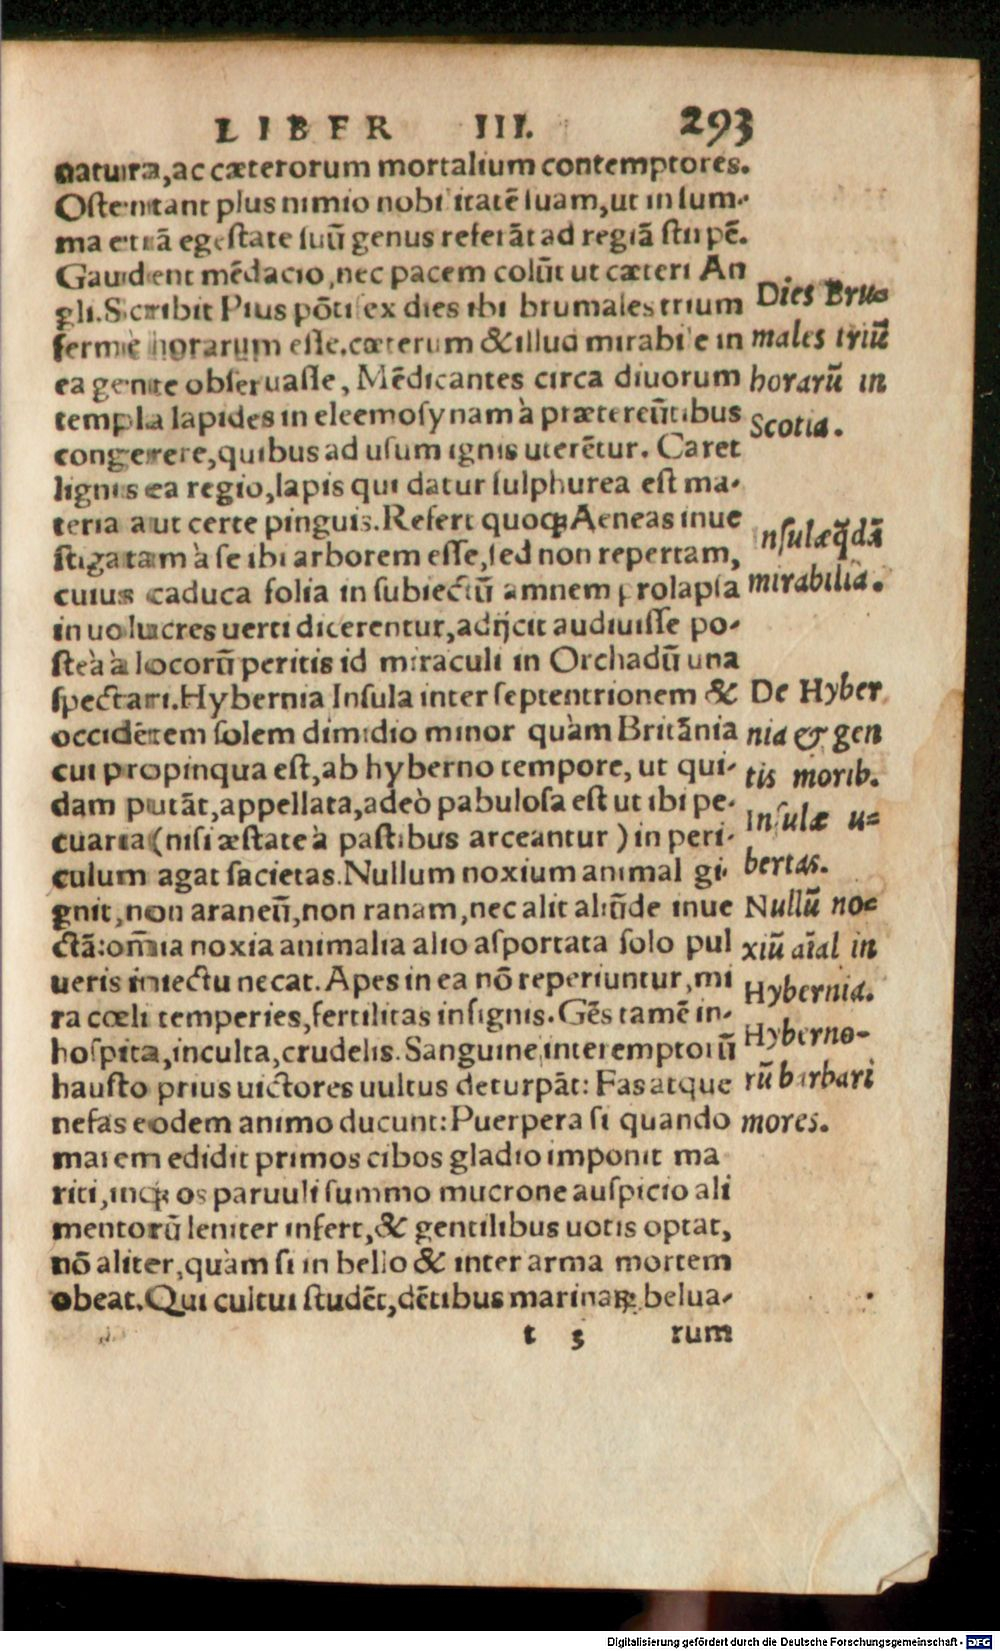 LIBER III. 293
natura, ac cæterorum mortalium contemptores.
Ostentant plus nimio nobilitatē suam, ut in sum-
ma etiā egestate suū genus referāt ad regiā stirpē.
Gaudent mēdacio, nec pacem colūt ut cæteri An
gli. Scribit Pius pōtifex dies ibi brumales trium
fermè horarum esse. cæterum & illud mirabile in
ea gente obseruasse, Mēdicantes circa diuorum
templa lapides in eleemosynam à prætereūtibus
congerere, quibus ad usum ignis uterētur. Caret
lignis ea regio, lapis qui datur sulphurea est ma-
teria aut certe pinguis. Refert quoqꝫ Aeneas inue
stigatam à se ibi arborem esse, sed non repertam,
cuius caduca folia in subiectū amnem prolapsa
in uolucres uerti dicerentur, adijcit audiuisse po-
steà à locorū peritis id miraculi in Orchadū una
spectari. Hybernia Insula inter septentrionem &
occidētem solem dimidio minor quàm Britānia
cui propinqua est, ab hyberno tempore, ut qui-
dam putāt, appellata, adeò pabulosa est ut ibi pe-
cuaria (nisi æstate à pastibus arceantur) in peri-
culum agat sacietas. Nullum noxium animal gi-
gnit, non araneū, non ranam, nec alit aliūde inue
ctā: om̄ia noxia animalia alio asportata solo pul
ueris iniectu necat. Apes in ea nō reperiuntur, mi
ra cœli temperies, fertilitas insignis. Gēs tamē in-
hospita, inculta, crudelis. Sanguine interemptorū
hausto prius uictores uultus deturpāt: Fas atque
nefas eodem animo ducunt: Puerpera si quando
marem edidit primos cibos gladio imponit ma
riti, inqꝫ os paruuli summo mucrone auspicio ali
mentorū leniter infert, & gentilibus uotis optat,
nō aliter, quàm si in bello & inter arma mortem
obeat. Qui cultui studēt, dētibus marinaꝝ belua-
t 5 rum
Dies Bru-
males triū
horarū in
Scotia.
Insulæ q̄dā
mirabilia.
De Hyber
nia & gen
tis morib.
Insulæ u-
bertas.
Nullū no-
xiū aīal in
Hybernia.
Hyberno-
rū barbari
mores.
Digitalisierung gefördert durch die Deutsche Forschungsgemeinschaft - DFG